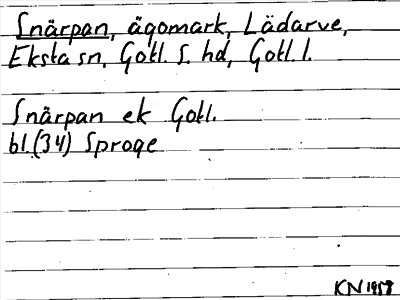 Snärpan, ägomark, Lädarve,
Eksta sn, Gotl. S. hd, Gotl. l.
Snärpan ek Gotl.
bl.(34) Sproge
KN 1957